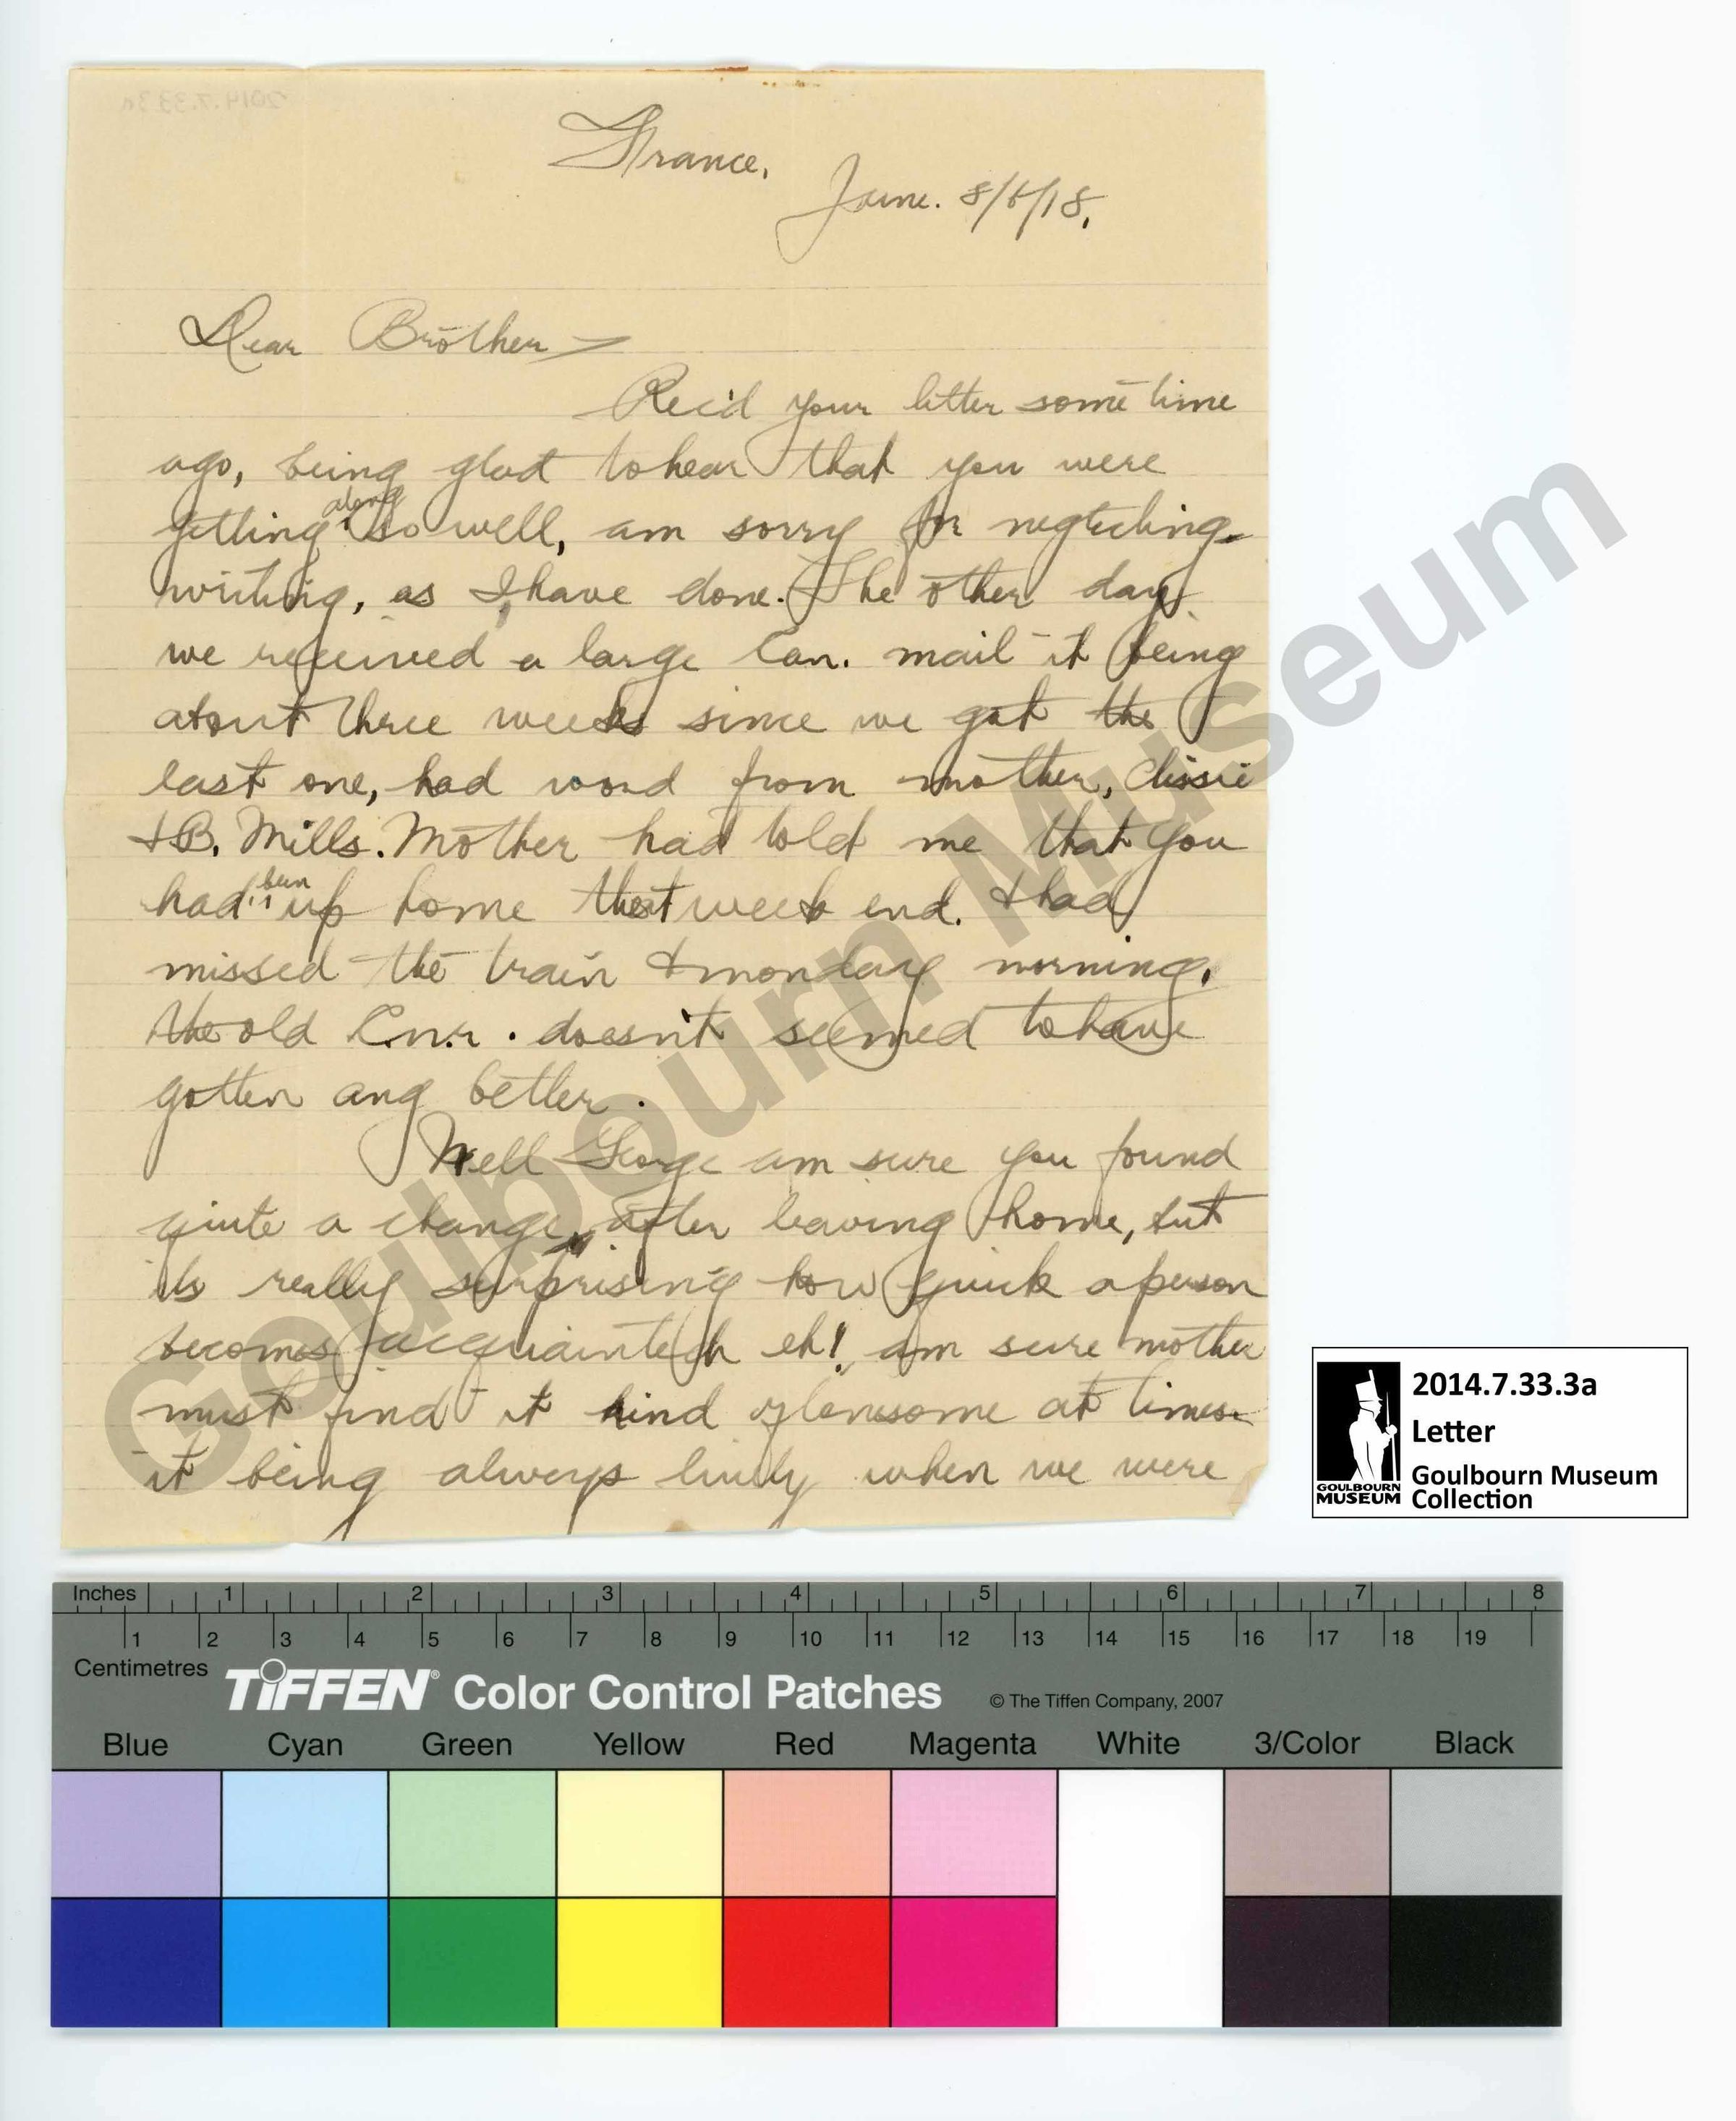 France,
June. 8/6/18,
Dear Brother
Rec'd your letter some time
ago, being glad to hear that you were
getting along so well, am sorry for neglecting
writing, as I have done. The other day
we received a large Can. mail it being
about three weeks since we got the
last one, had word from mother,
& B. Mills. Mother had told me that you
had been up home that week end. & had
missed the train & monday morning.
the old C.n.r. doesn't seemed to have
gotten any better.
Well George am sure you found
quite a change, after leaving home, but
its really surprising how quick a person
becomes eh! am sure mother
must find it kind of lonesome at times
it being always lively when we were
Goulbourn Museum
2014.7.33.3a
Letter
Goulbourn Museum
Collection
GOULBOURN
MUSEUM
Inches 1 2 3 4 5 6 7 8
1 2 3 4 5 6 7 8 9 10 11 12 13 14 15 16 17 18 19
Centimetres
TIFFEN® Color Control Patches © The Tiffen Company, 2007
Blue Cyan Green Yellow Red Magenta White 3/Color Black